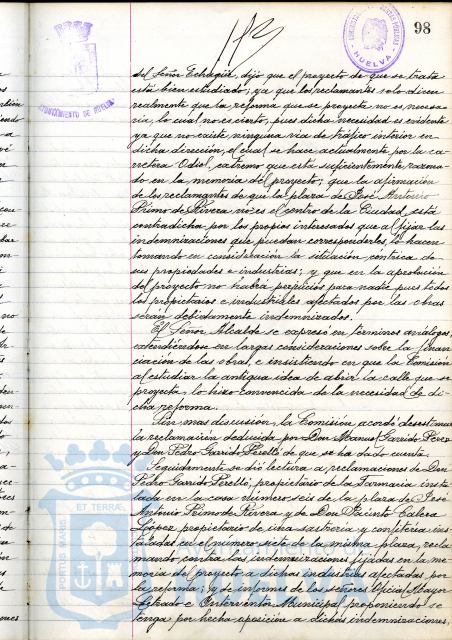 98
AYUNTAMIENTO DE HUELVA
HUELVA
del Señor Echagüe, dijo que el proyecto de que se trata
está bien estudiado; ya que los reclamantes solo dicen
realmente que la reforma que se proyecta no es necesa-
ria, lo cual no es cierto, pues dicha necesidad es evidente
ya que no existe ninguna via de tráfico interior en
dicha dirección, el cual se hace actualmente por la ca-
rretera Odiel, extremo que está suficientemente razona-
do en la memoria del proyecto; que la afirmación
de los reclamantes de que la plaza de José Antonio
Primo de Rivera no es el centro de la Ciudad, está
contradicha por los propios interesados que al fijar las
indemnizaciones que puedan corresponderles, lo hacen
tomando en consideración la situación céntrica de
sus propiedades e industrias; y que en la aprobación
del proyecto no habrá perjuicios para nadie pues todos
los propietarios e industriales afectados por las obras
serán debidamente indemnizados.
El Señor Alcalde se expresó en términos análogos,
extendiéndose en largas consideraciones sobre la finan-
ciación de las obras, e insistiendo en que la Comisión
al estudiar la antigua idea de abrir la calle que se
proyecta, lo hizo convencida de la necesidad de di-
cha reforma.
Sin mas discusión, la Comisión acordó desestimar
la reclamación deducida por Don Manuel Garrido Pérez
y Don Pedro Garrido Perelló de que se ha dado cuenta.
Seguidamente se dió lectura a reclamaciones de Don
Pedro Garrido Perelló, propietario de la Farmacia insta-
lada en la casa número seis de la plaza de José
Antonio Primo de Rivera y de Don Jacinto Calero
López propietario de una sastrería y confitería ins-
taladas en el número siete de la misma plaza, recla-
mando contra las indemnizaciones fijadas en la me-
moria del proyecto a dichas industrias afectadas por
la reforma; y de informes de los señores Oficial Mayor
Letrado e Interventor Municipal proponiendo se
tenga por hecha oposición a dichas indemnizaciones,
PORTUS MARIS ET TERRAE
Ayuntamiento de